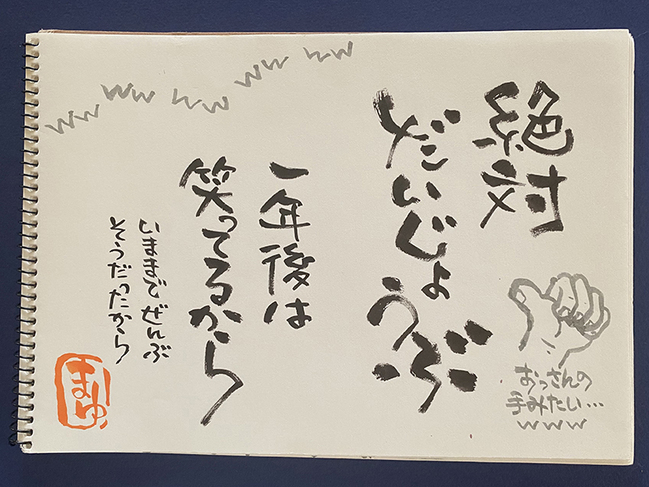 絶対
だいじょうぶ
一年後は
笑ってるから
いままでぜんぶ
そうだったから
まゆ
おっさんの
手みたい…
www
ww
ww
ww
ww
ww